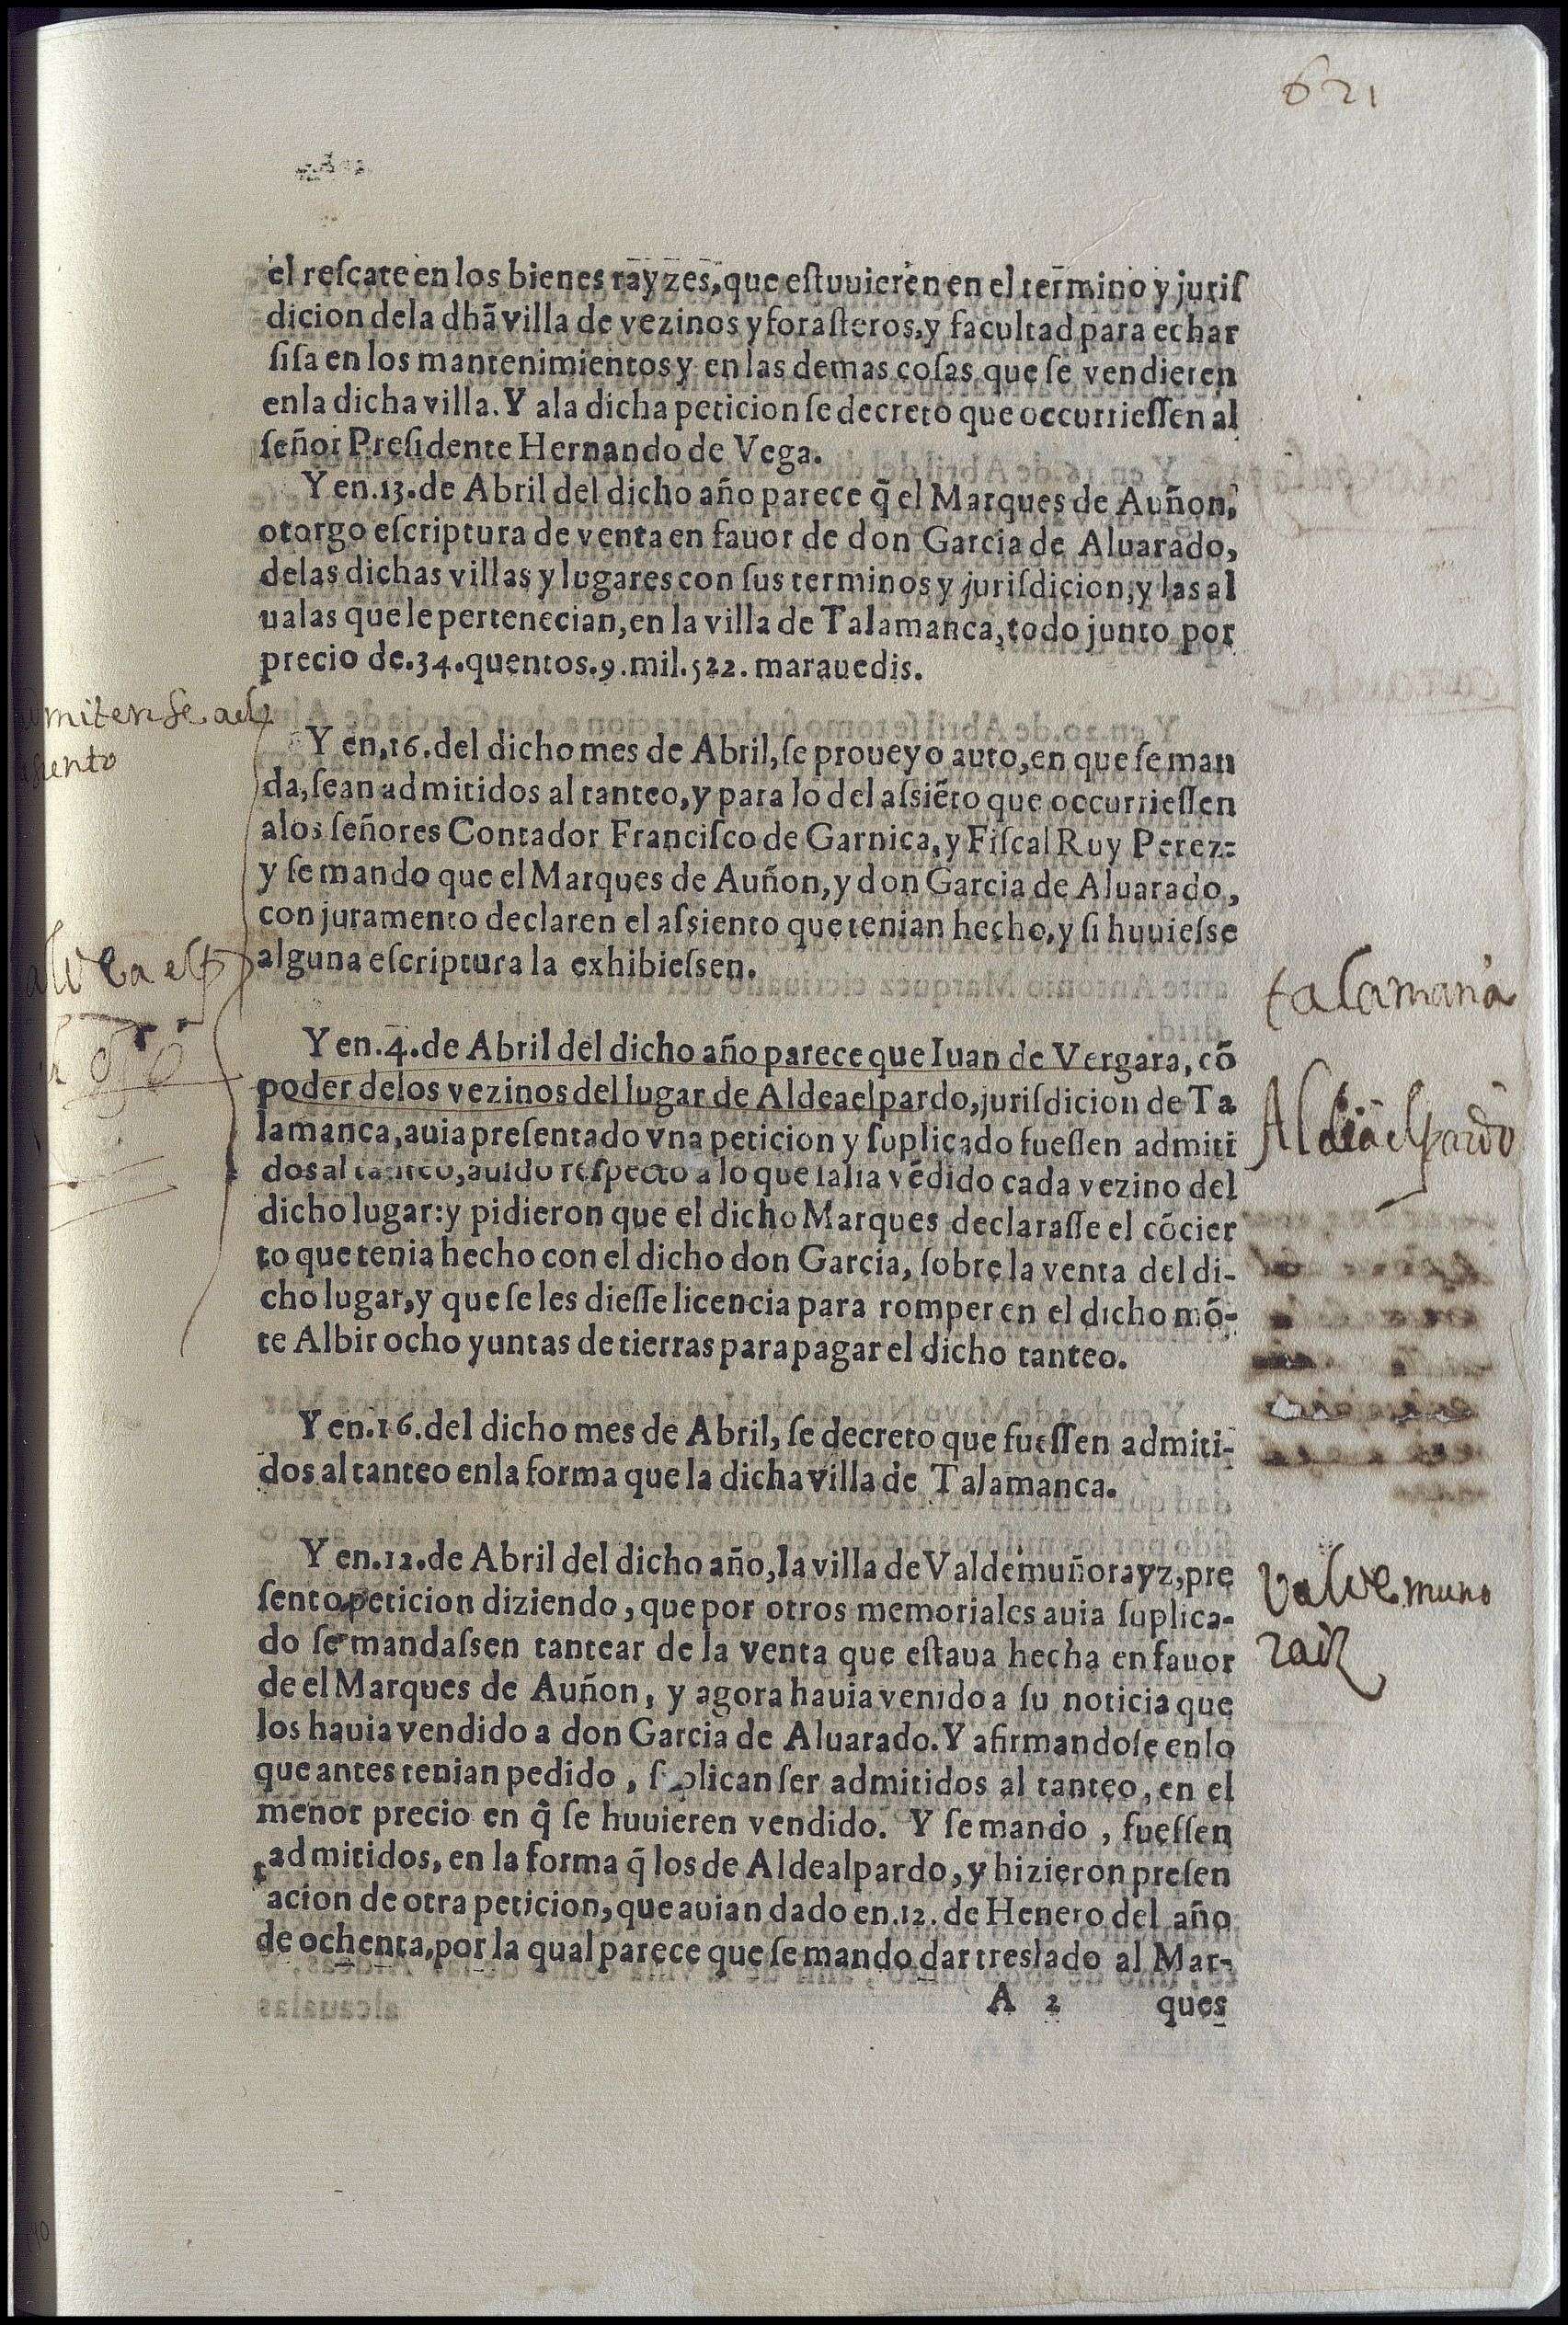 621
el reſcate en los bienes rayzes, que eſtuuieren en el termino y juriſ
dicion dela dhã villa de vezinos y foraſteros, y facultad para echar
ſiſa en los mantenimientos y en las demas coſas que ſe vendieren
enla dicha villa. Y ala dicha peticion ſe decreto que occurrieſſen al
ſeñor Preſidente Hernando de Vega.
Y en.13.de Abril del dicho año parece q̃ el Marques de Auñon,
otorgo eſcriptura de venta en fauor de don Garcia de Aluarado,
delas dichas villas y lugares con ſus terminos y juriſdicion, y las al
ualas que le pertenecian, en la villa de Talamanca, todo junto por
precio de.34.quentos.9.mil.522. marauedis.
mitense
Y en.16.del dicho mes de Abril, ſe proueyo auto, en que ſe man
da, ſean admitidos al tanteo, y para lo del aſsiẽto que occurrieſſen
alos ſeñores Contador Franciſco de Garnica, y Fiſcal Ruy Perez:
y ſe mando que el Marques de Auñon, y don Garcia de Aluarado,
con juramento declaren el aſsiento que tenian hecho, y ſi huuieſse
alguna eſcriptura la exhibieſsen.
talamanca
Y en.4.de Abril del dicho año parece que Iuan de Vergara, cõ
poder delos vezinos del lugar de Aldeaelpardo, juriſdicion de Ta
lamanca, auia preſentado vna peticion y ſuplicado fueſſen admiti
dos al tanteo, auido reſpecto a lo que ſalia vẽdido cada vezino del
dicho lugar: y pidieron que el dicho Marques declaraſſe el cõcier
to que tenia hecho con el dicho don Garcia, ſobre la venta del di-
cho lugar, y que ſe les dieſſe licencia para romper en el dicho mõ-
te Albir ocho yuntas de tierras para pagar el dicho tanteo.
Aldea el pardo
Y en.16.del dicho mes de Abril, ſe decreto que fueſſen admiti-
dos al tanteo enla forma que la dicha villa de Talamanca.
Y en.12.de Abril del dicho año, la villa de Valdemuñorayz, pre
ſento peticion diziendo, que por otros memoriales auia ſuplica-
do ſe mandaſsen tantear de la venta que eſtaua hecha en fauor
de el Marques de Auñon, y agora hauia venido a ſu noticia que
los hauia vendido a don Garcia de Aluarado. Y afirmandoſe enlo
que antes tenian pedido, ſuplican ſer admitidos al tanteo, en el
menor precio en q̃ ſe huuieren vendido. Y ſe mando, fueſſen
admitidos, en la forma q̃ los de Aldealpardo, y hizieron preſen
tacion de otra peticion, que auian dado en.12. de Henero del año
de ochenta, por la qual parece que ſe mando dar treslado al Mar-
valdemuno
raiz
A 2 ques